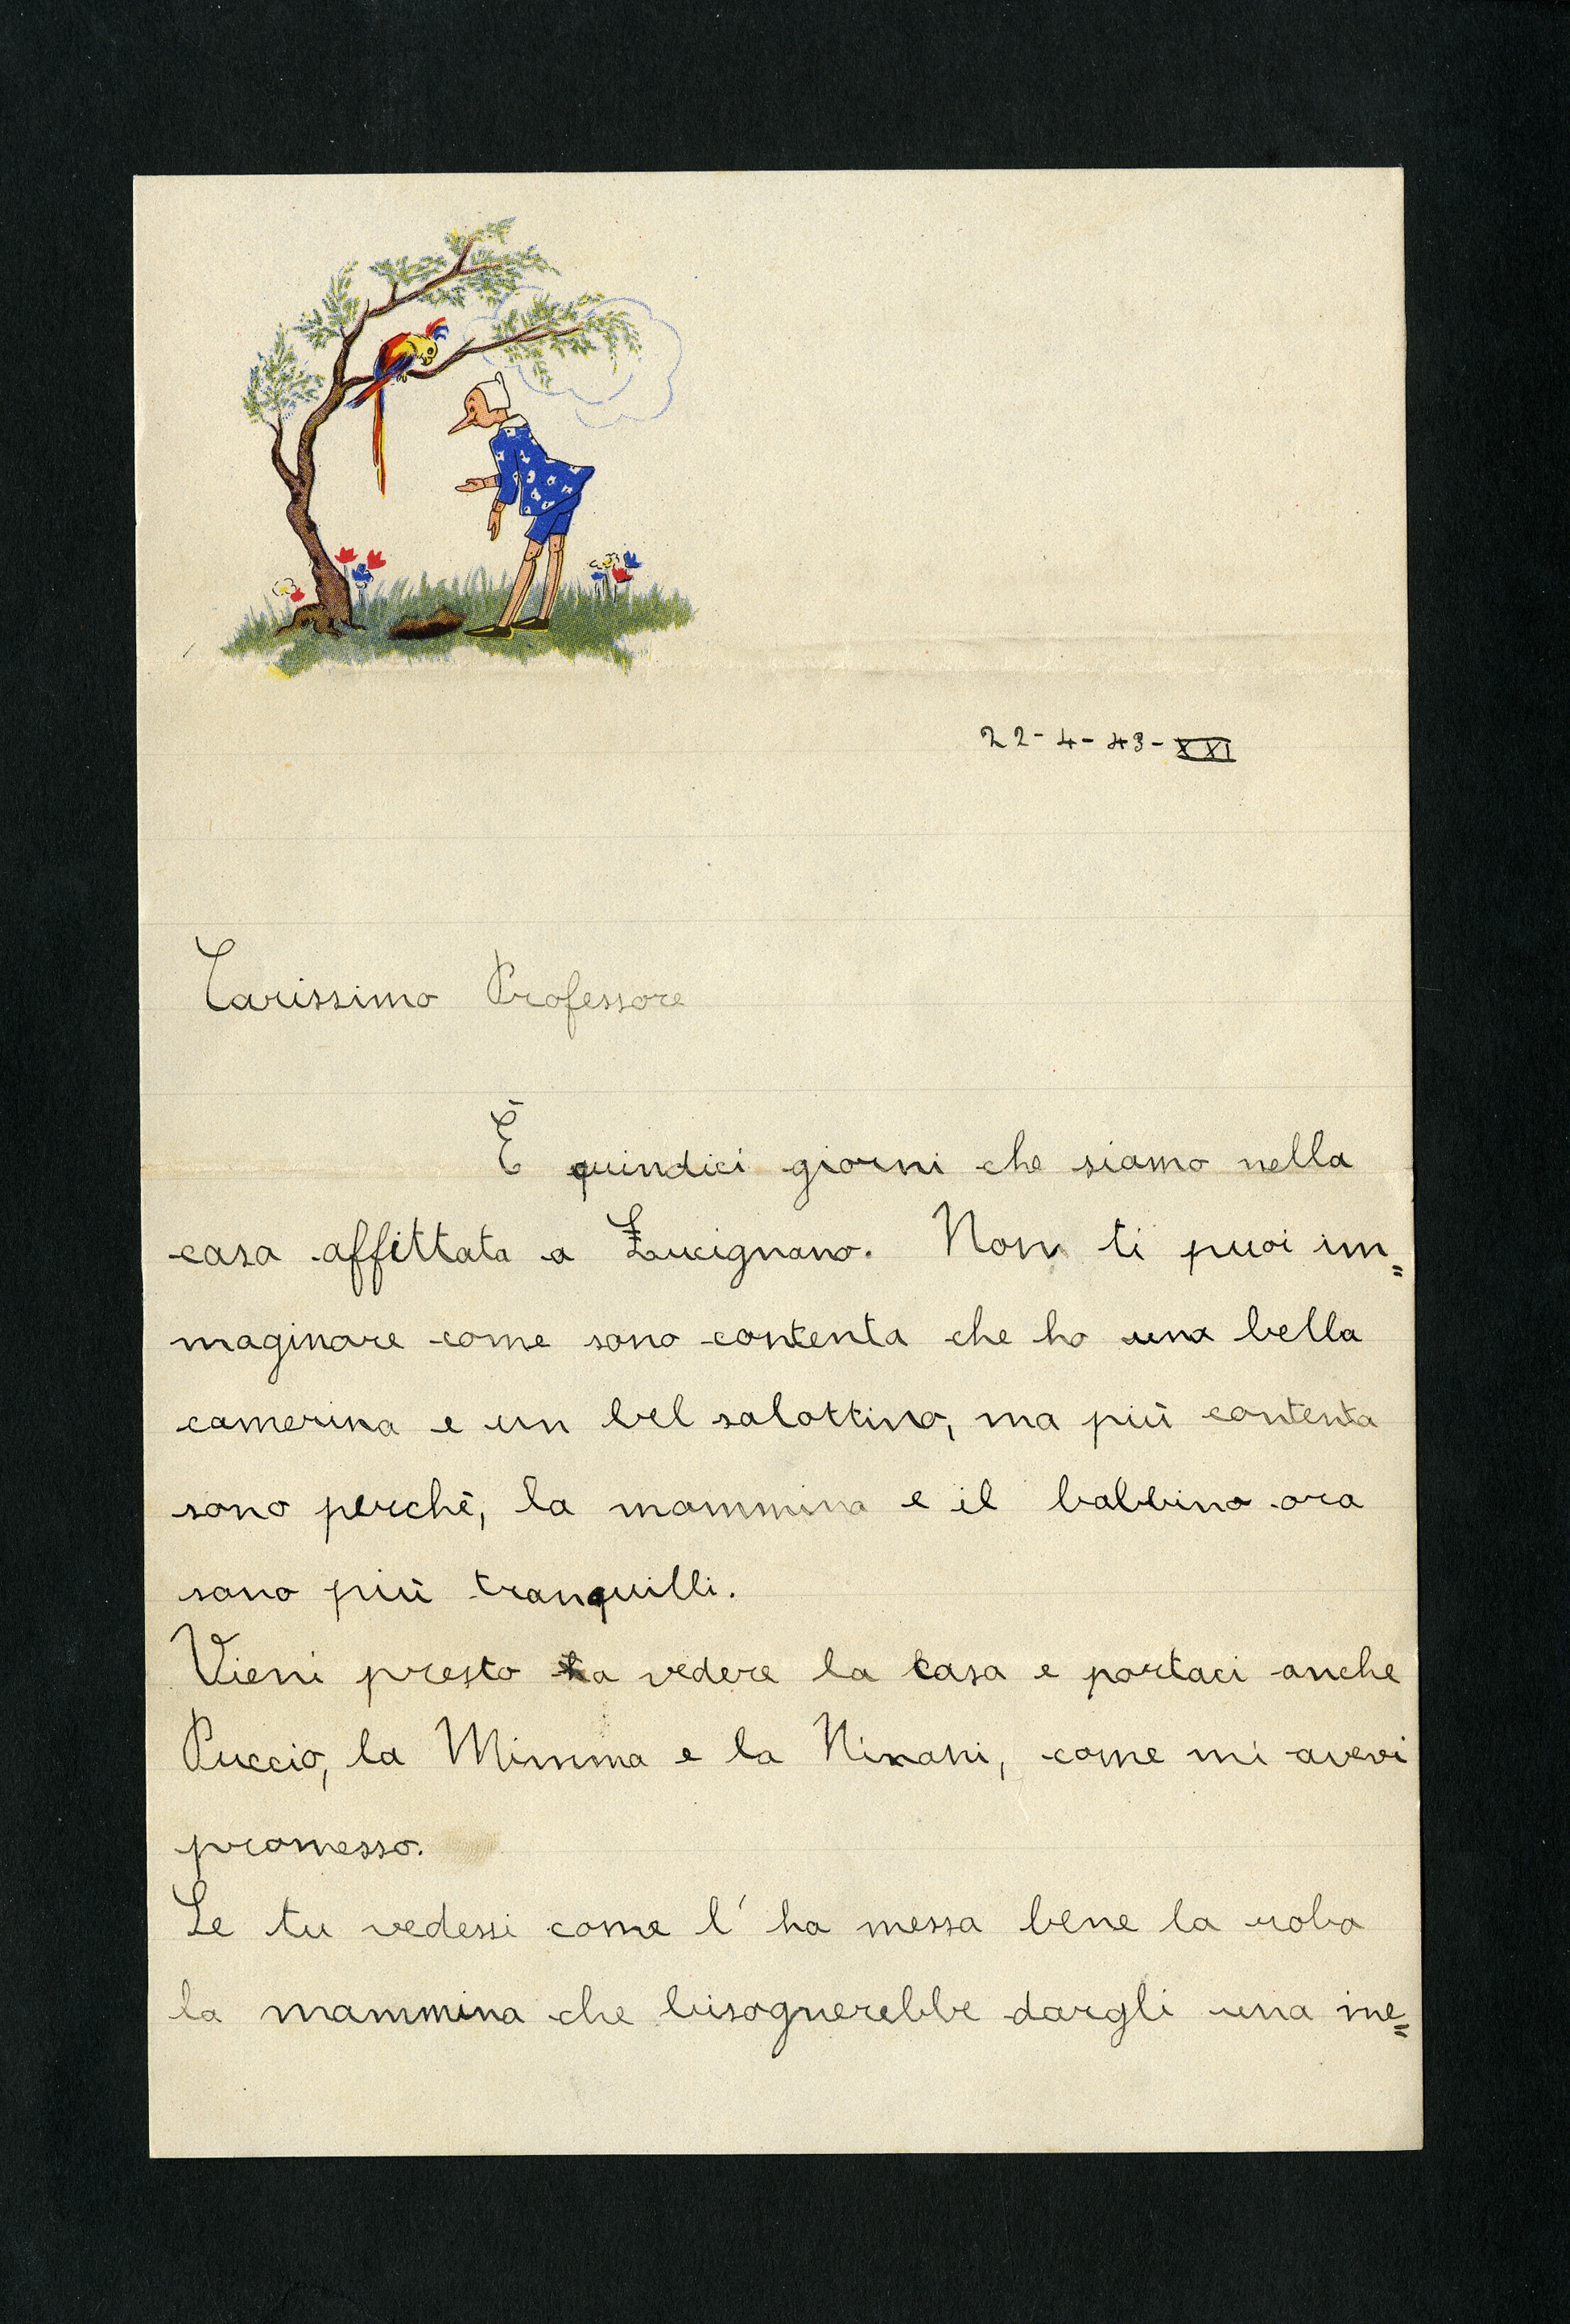 22-4-43-XXI
Carissimo Professore
È quindici giorni che siamo nella
casa affittata a Lucignano. Non ti puoi im=
maginare come sono contenta che ho una bella
camerina e un bel salottino, ma più contenta
sono perchè, la mammina e il babbino ora
sono più tranquilli.
Vieni presto a vedere la casa e portaci anche
Puccio, la Mimma e la Ninani, come mi avevi
promesso.
Se tu vedessi come l'ha messa bene la roba
la mammina che bisognerebbe dargli una me=